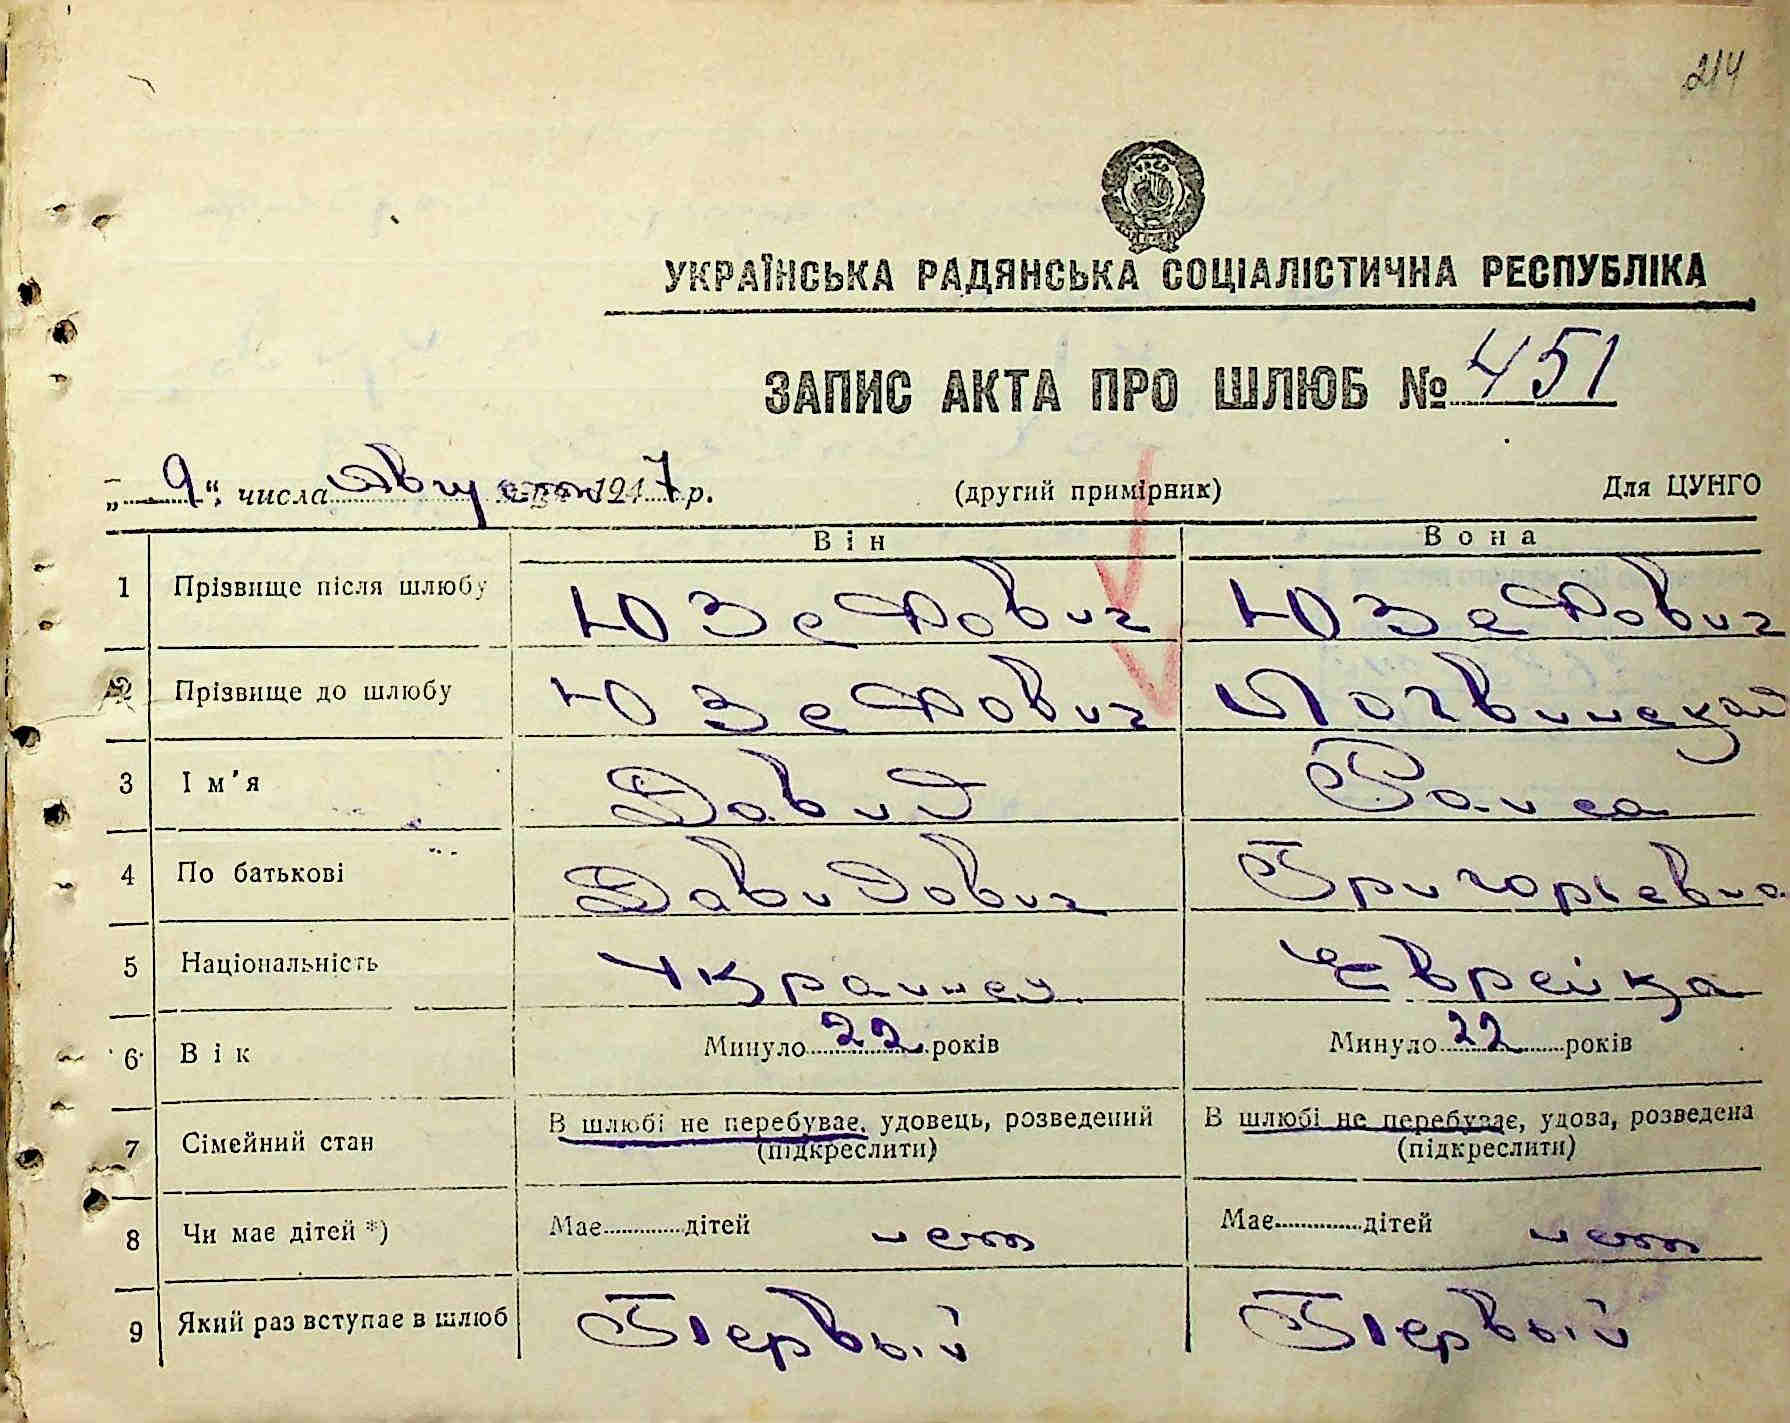 214
УКРАЇНСЬКА РАДЯНСЬКА СОЦІАЛІСТИЧНА РЕСПУБЛІКА
ЗАПИС АКТА ПРО ШЛЮБ № 451
„ 9 “ числа Август 1947 р. (другий примірник) Для ЦУНГО
Він Вона
1 Прізвище після шлюбу Юзефович Юзефович
2 Прізвище до шлюбу Юзефович Логвинская
3 Ім'я Давид Раиса
4 По батькові Давидович Григорьевна
5 Національність Украинец Еврейка
6 Вік Минуло 22 років Минуло 22 років
7 Сімейний стан В шлюбі не перебуває, удовець, розведений (підкреслити) В шлюбі не перебуває, удова, розведена (підкреслити)
8 Чи має дітей *) Має дітей нет Має дітей нет
9 Який раз вступає в шлюб Первый Первый